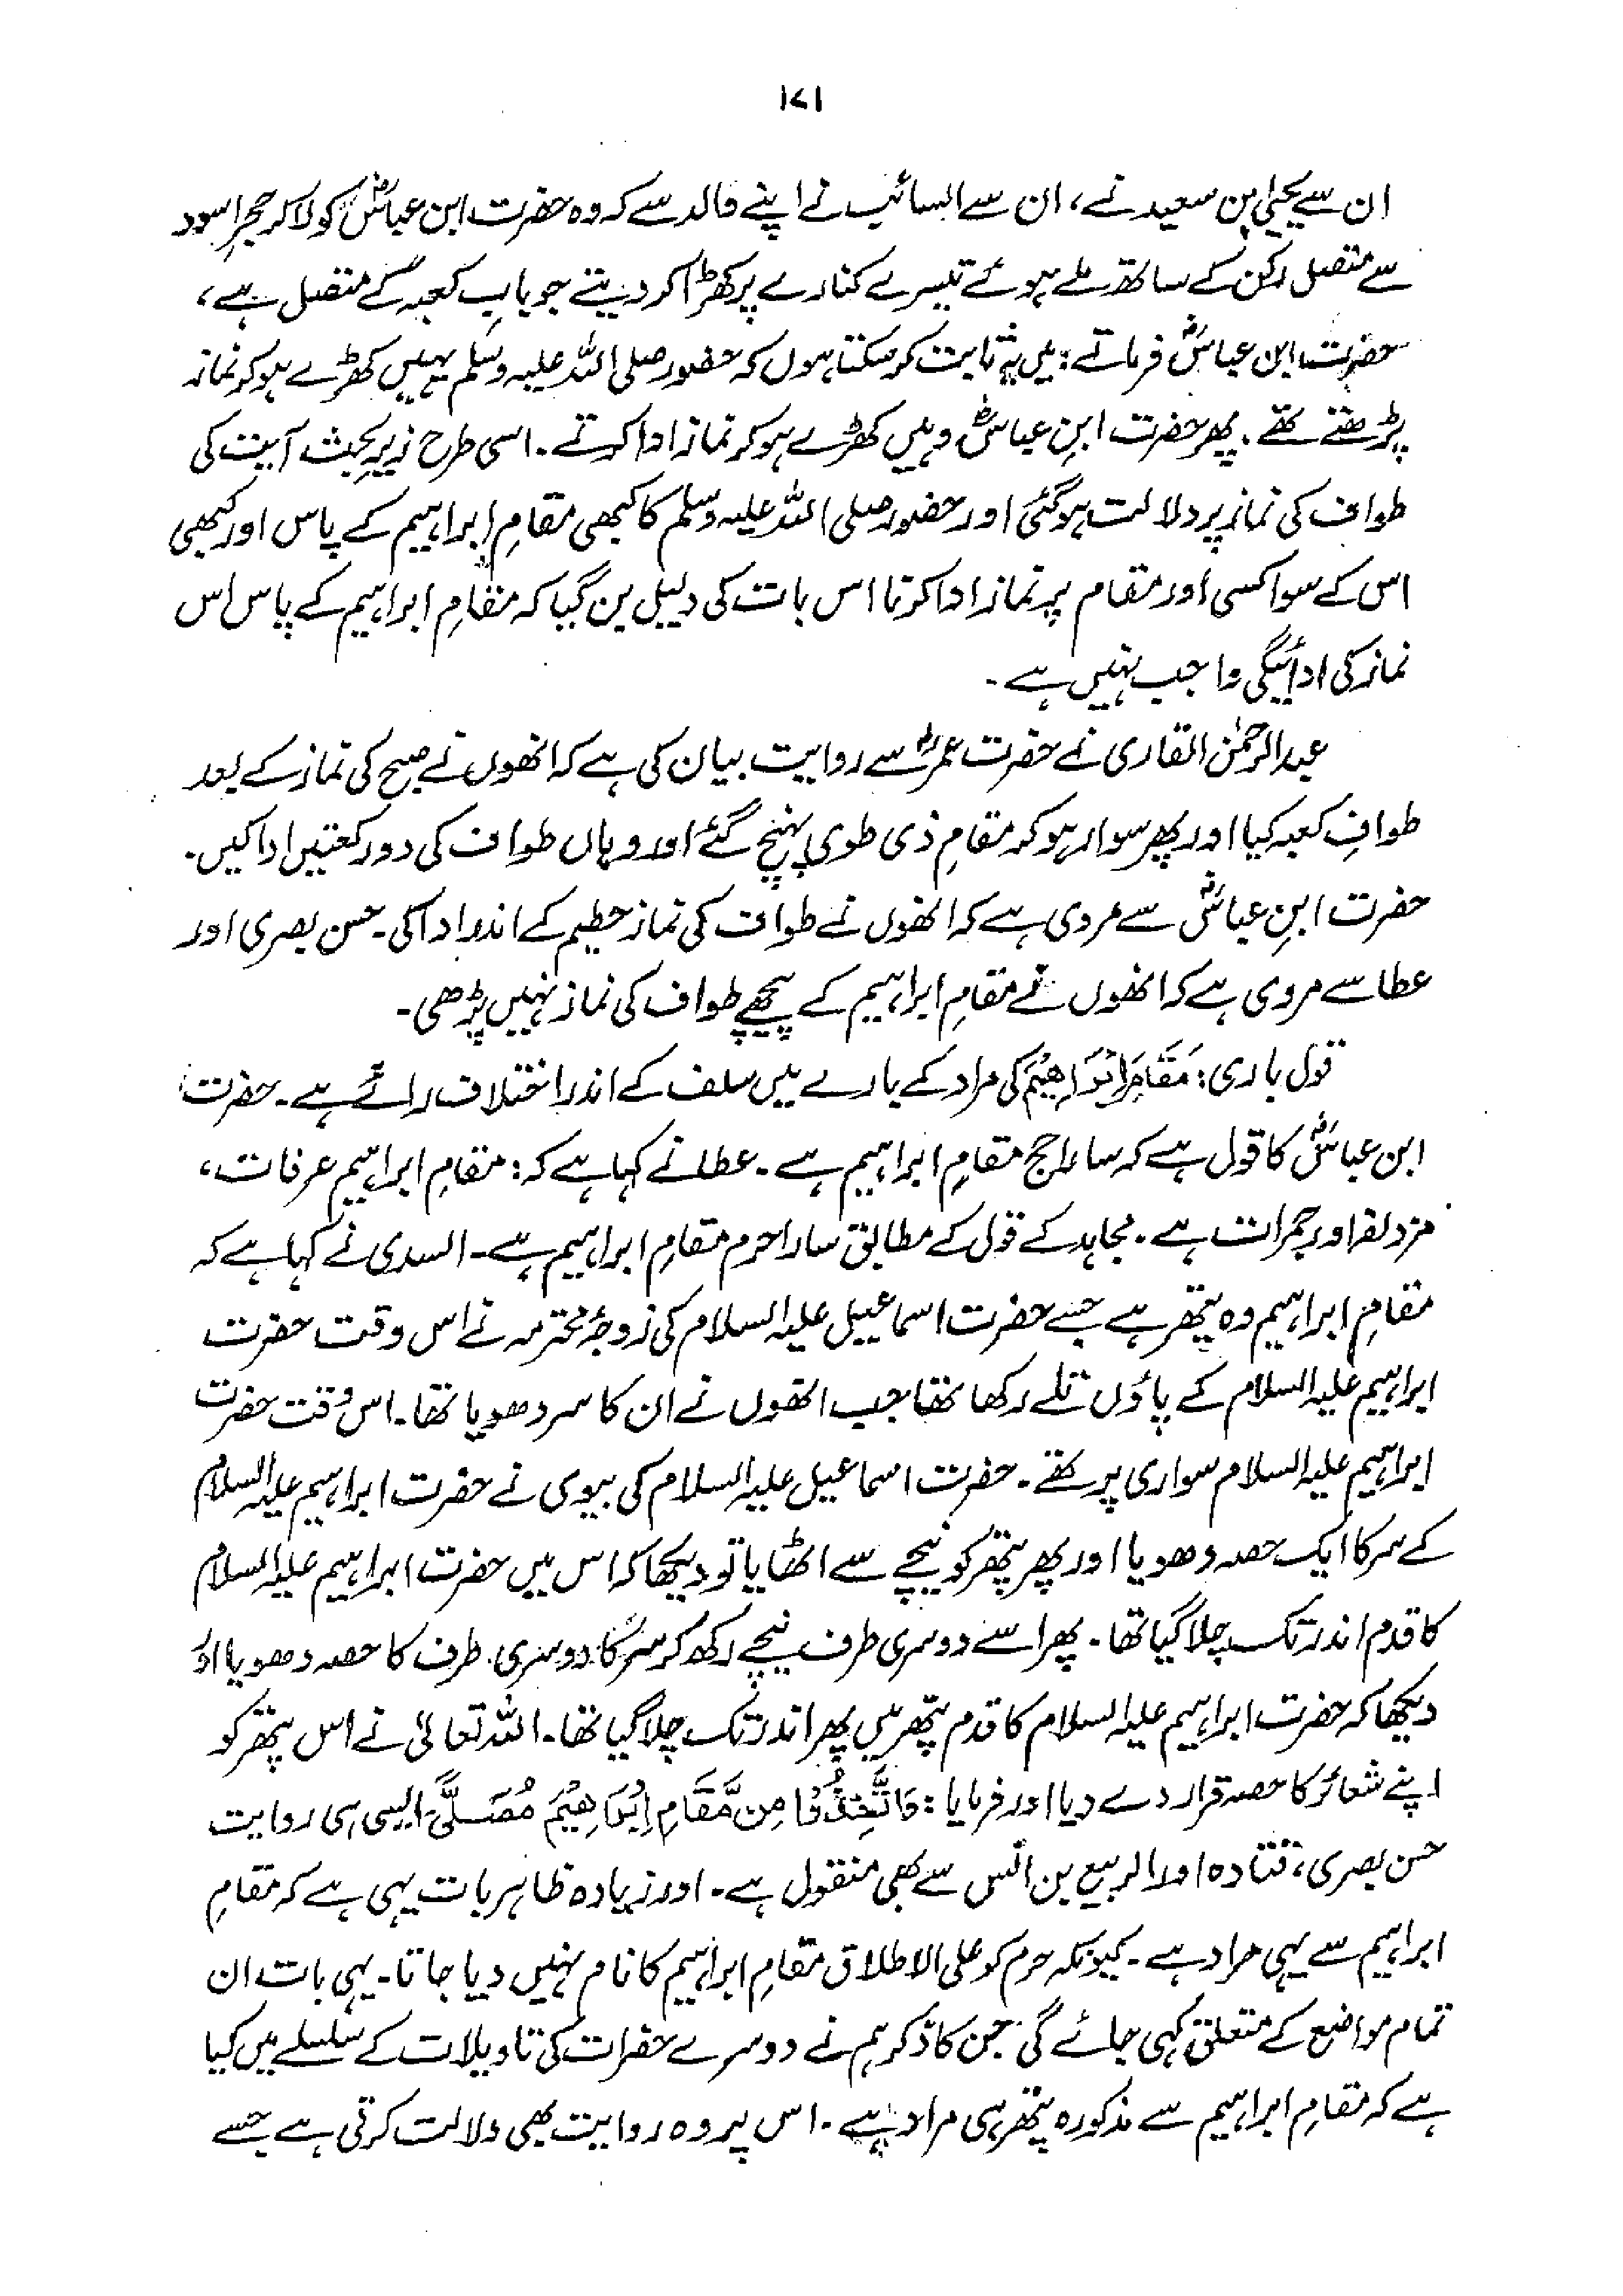 ۱۷۱
ان سے یحییٰ بن سعید نے، ان سے السائب نے اپنے والد سے کہ وہ حضرت ابن عباسؓ کو لاکر حجرِ اسود
سے متصل رکن کے ساتھ ملے ہوئے تیسرے کنارے پر کھڑا کر دیتے جو بابِ کعبہ کے متصل ہے،
حضرت ابن عباسؓ فرماتے: میں یہ ثابت کر سکتا ہوں کہ حضور صلی اللہ علیہ وسلم یہیں کھڑے ہو کر نماز
پڑھتے تھے۔ پھر حضرت ابنِ عباسؓ وہیں کھڑے ہو کر نماز ادا کرتے۔ اسی طرح زیرِ بحث آیت کی
طواف کی نماز پر دلالت ہوگئی اور حضور صلی اللہ علیہ وسلم کا کبھی مقامِ ابراہیم کے پاس اور کبھی
اس کے سوا کسی اور مقام پر نماز ادا کرنا اس بات کی دلیل بن گیا کہ مقامِ ابراہیم کے پاس اس
نماز کی ادائیگی واجب نہیں ہے۔
عبدالرحمٰن القاری نے حضرت عمرؓ سے روایت بیان کی ہے کہ انھوں نے صبح کی نماز کے بعد
طوافِ کعبہ کیا اور پھر سوار ہو کر مقامِ ذی طوی پہنچ گئے اور وہاں طواف کی دو رکعتیں ادا کیں۔
حضرت ابنِ عباسؓ سے مروی ہے کہ انھوں نے طواف کی نماز حطیم کے اندر ادا کی۔ حسن بصری اور
عطا سے مروی ہے کہ انھوں نے مقامِ ابراہیم کے پیچھے طواف کی نماز نہیں پڑھی۔
قول باری: مَقَامِ اِبْرَاهِيْمَ کی مراد کے بارے میں سلف کے اندر اختلاف رائے ہے۔ حضرت
ابن عباسؓ کا قول ہے کہ سارا حج مقامِ ابراہیم ہے۔ عطا نے کہا ہے کہ: مقامِ ابراہیم عرفات،
مزدلفہ اور جمرات ہے۔ مجاہد کے قول کے مطابق سارا حرم مقامِ ابراہیم ہے۔ السدی نے کہا ہے کہ
مقامِ ابراہیم وہ پتھر ہے جسے حضرت اسماعیل علیہ السلام کی زوجۂ محترمہ نے اس وقت حضرت
ابراہیم علیہ السلام کے پاؤں تلے رکھا تھا جب انھوں نے ان کا سر دھویا تھا۔ اس وقت حضرت
ابراہیم علیہ السلام سواری پر تھے۔ حضرت اسماعیل علیہ السلام کی بیوی نے حضرت ابراہیم علیہ السلام
کے سر کا ایک حصہ دھویا اور پھر پتھر کو نیچے سے اٹھایا تو دیکھا کہ اس میں حضرت ابراہیم علیہ السلام
کا قدم اندر تک چلا گیا تھا۔ پھر اسے دوسری طرف نیچے رکھ کر سر کا دوسری طرف کا حصہ دھویا اور
دیکھا کہ حضرت ابراہیم علیہ السلام کا قدم پتھر میں پھر اندر تک چلا گیا تھا۔ اللہ تعالیٰ نے اس پتھر کو
اپنے شعائر کا حصہ قرار دے دیا اور فرمایا: وَاتَّخِذُوْا مِنْ مَّقَامِ اِبْرَاهِيْمَ مُصَلًّى ایسی ہی روایت
حسن بصری، قتادہ اور الربیع بن انس سے بھی منقول ہے۔ اور زیادہ ظاہر بات یہی ہے کہ مقامِ
ابراہیم سے یہی مراد ہے۔ کیونکہ حرم کو علی الاطلاق مقامِ ابراہیم کا نام نہیں دیا جاتا۔ یہی بات ان
تمام مواضع کے متعلق کہی جائے گی جن کا ذکر ہم نے دوسرے حضرات کی تاویلات کے سلسلے میں کیا
ہے کہ مقامِ ابراہیم سے مذکورہ پتھر ہی مراد ہے۔ اس پر وہ روایت بھی دلالت کرتی ہے جسے